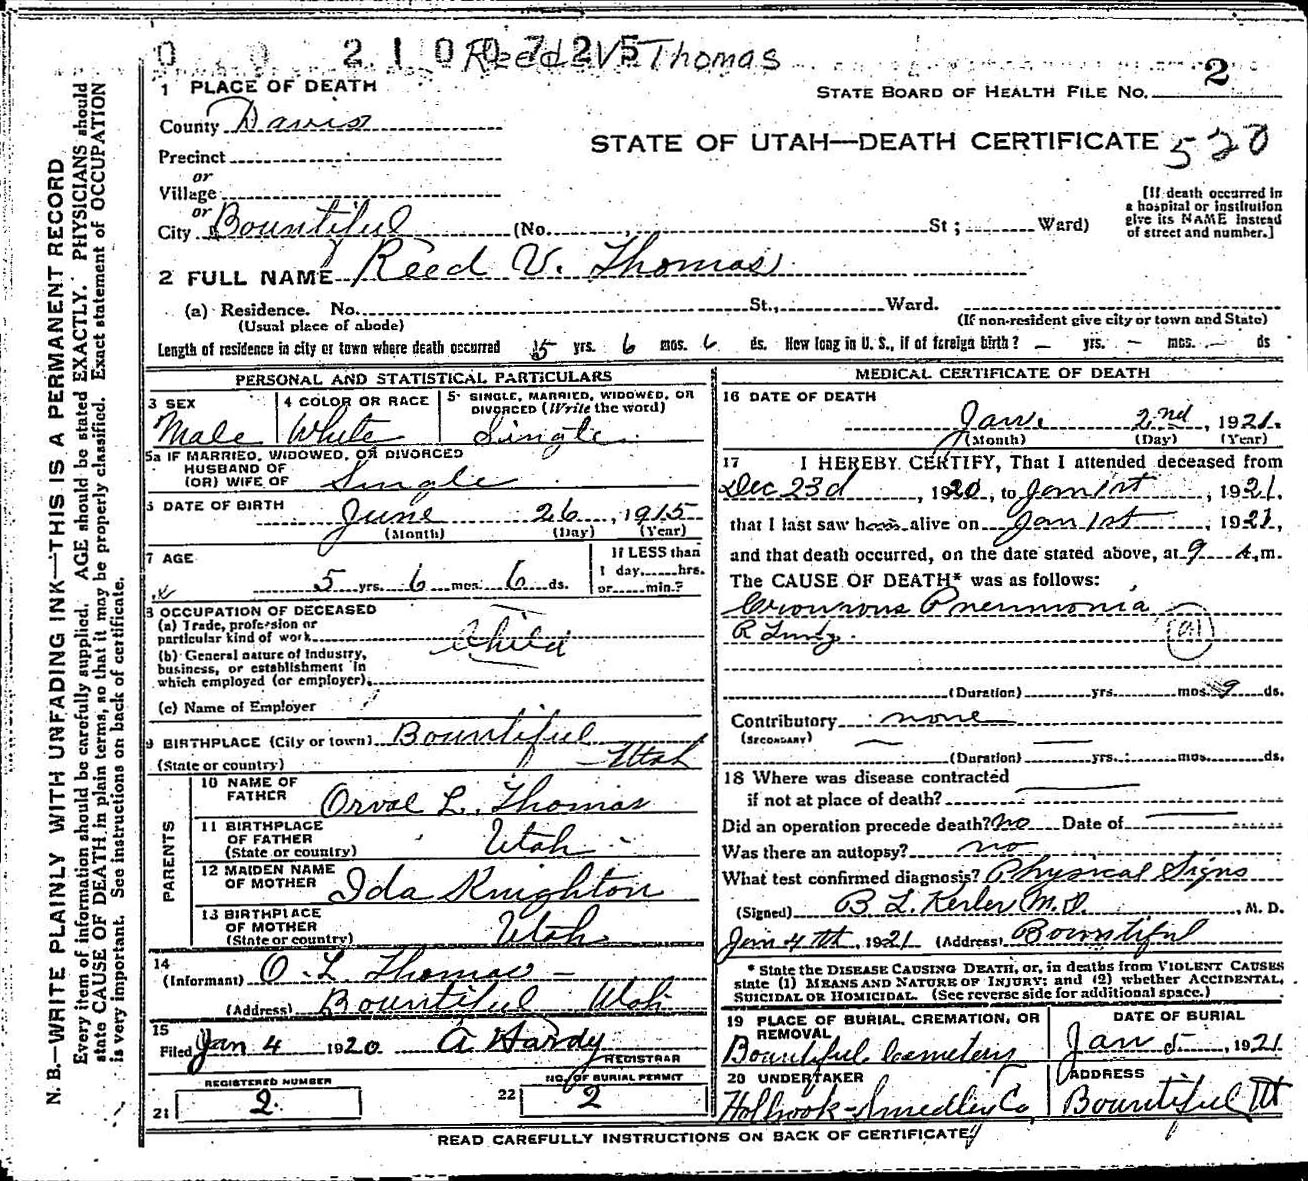 0 0 2 1 0 0 7 2 5
Reed V. Thomas
2
STATE BOARD OF HEALTH FILE NO.
STATE OF UTAH—DEATH CERTIFICATE 520
1 PLACE OF DEATH
County Davis
Precinct
or
Village
or
City Bountiful (No. , St ; Ward)
[If death occurred in
a hospital or institution
give its NAME instead
of street and number.]
2 FULL NAME Reed V. Thomas
(a) Residence. No. St., Ward.
(Usual place of abode)
(If non-resident give city or town and State)
Length of residence in city or town where death occurred 5 yrs. 6 mos. 6 ds. How long in U. S., if of foreign birth? — yrs. — mos. — ds
PERSONAL AND STATISTICAL PARTICULARS
3 SEX
Male
4 COLOR OR RACE
White
5 SINGLE, MARRIED, WIDOWED, OR
DIVORCED (Write the word)
Single
5a IF MARRIED, WIDOWED, OR DIVORCED
HUSBAND OF
(OR) WIFE OF Single
6 DATE OF BIRTH
June 26, 1915
(Month) (Day) (Year)
7 AGE
5 yrs. 6 mos. 6 ds.
If LESS than
1 day, hrs.
or min.?
8 OCCUPATION OF DECEASED
(a) Trade, profession or
particular kind of work
Child
(b) General nature of Industry,
business, or establishment in
which employed (or employer)
(c) Name of Employer
9 BIRTHPLACE (City or town) Bountiful
(State or country) Utah
PARENTS
10 NAME OF
FATHER Orval L. Thomas
11 BIRTHPLACE
OF FATHER
(State or country) Utah
12 MAIDEN NAME
OF MOTHER Ida Knighton
13 BIRTHPLACE
OF MOTHER
(State or country) Utah
14
(Informant) O. L. Thomas
(Address) Bountiful Utah
15
Filed Jan 4 1920 A Hardy
REGISTRAR
REGISTERED NUMBER
21 2
NO. OF BURIAL PERMIT
22 2
MEDICAL CERTIFICATE OF DEATH
16 DATE OF DEATH
Jan. 2nd, 1921.
(Month) (Day) (Year)
17 I HEREBY CERTIFY, That I attended deceased from
Dec 23d, 1920, to Jan 1st, 1921.
that I last saw him alive on Jan 1st, 1921,
and that death occurred, on the date stated above, at 9 A.m.
The CAUSE OF DEATH* was as follows:
Croupous Pneumonia
R Lung.
(Duration) yrs. mos. 9 ds.
Contributory none
(SECONDARY)
(Duration) yrs. mos. ds.
18 Where was disease contracted
if not at place of death?
Did an operation precede death? no Date of
Was there an autopsy? no
What test confirmed diagnosis? Physical Signs
(Signed) B L Kesler M.D., M. D.
Jan 4th, 1921 (Address) Bountiful
* State the DISEASE CAUSING DEATH, or, in deaths from VIOLENT CAUSES
state (1) MEANS AND NATURE OF INJURY; and (2) whether ACCIDENTAL,
SUICIDAL OR HOMICIDAL. (See reverse side for additional space.)
19 PLACE OF BURIAL, CREMATION, OR
REMOVAL
Bountiful Cemetery
DATE OF BURIAL
Jan 5, 1921
20 UNDERTAKER
Holbrook-Smedley Co
ADDRESS
Bountiful Ut
READ CAREFULLY INSTRUCTIONS ON BACK OF CERTIFICATE
N. B.—WRITE PLAINLY WITH UNFADING INK—THIS IS A PERMANENT RECORD
Every item of information should be carefully supplied. AGE should be stated EXACTLY. PHYSICIANS should
state CAUSE OF DEATH in plain terms, so that it may be properly classified. Exact statement of OCCUPATION
is very important. See instructions on back of certificate.